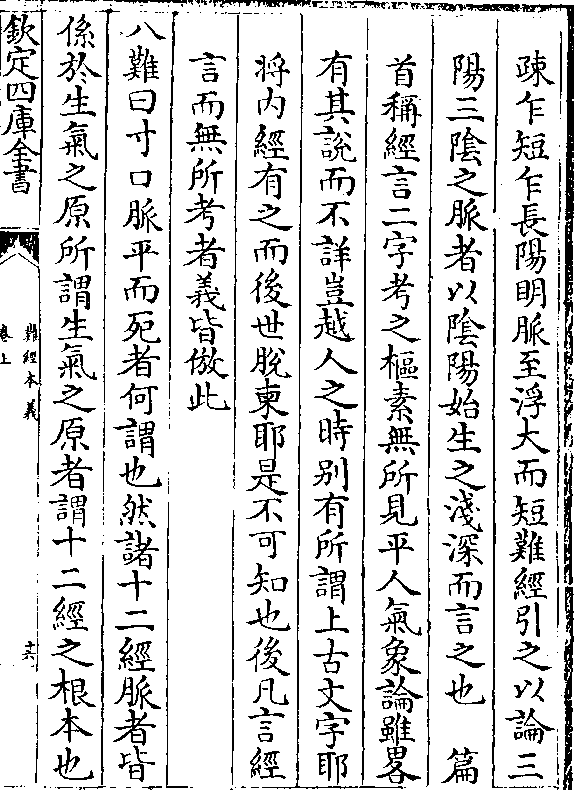 疎乍短乍長陽明脈至浮大而短難經引之以論三
陽三陰之脈者以陰陽始生之淺深而言之也　篇
首稱經言二字考之樞素無所見平人氣象論雖畧
有其說而不詳豈越人之時别有所謂上古文字耶
將内經有之而後世脫柬耶是不可知也後凡言經
言而無所考者義皆倣此
八難曰寸口脈平而死者何謂也然諸十二經脈者皆
係於生氣之原所謂生氣之原者謂十二經之根本也
欽定四庫全書
難經本義
卷上
十六